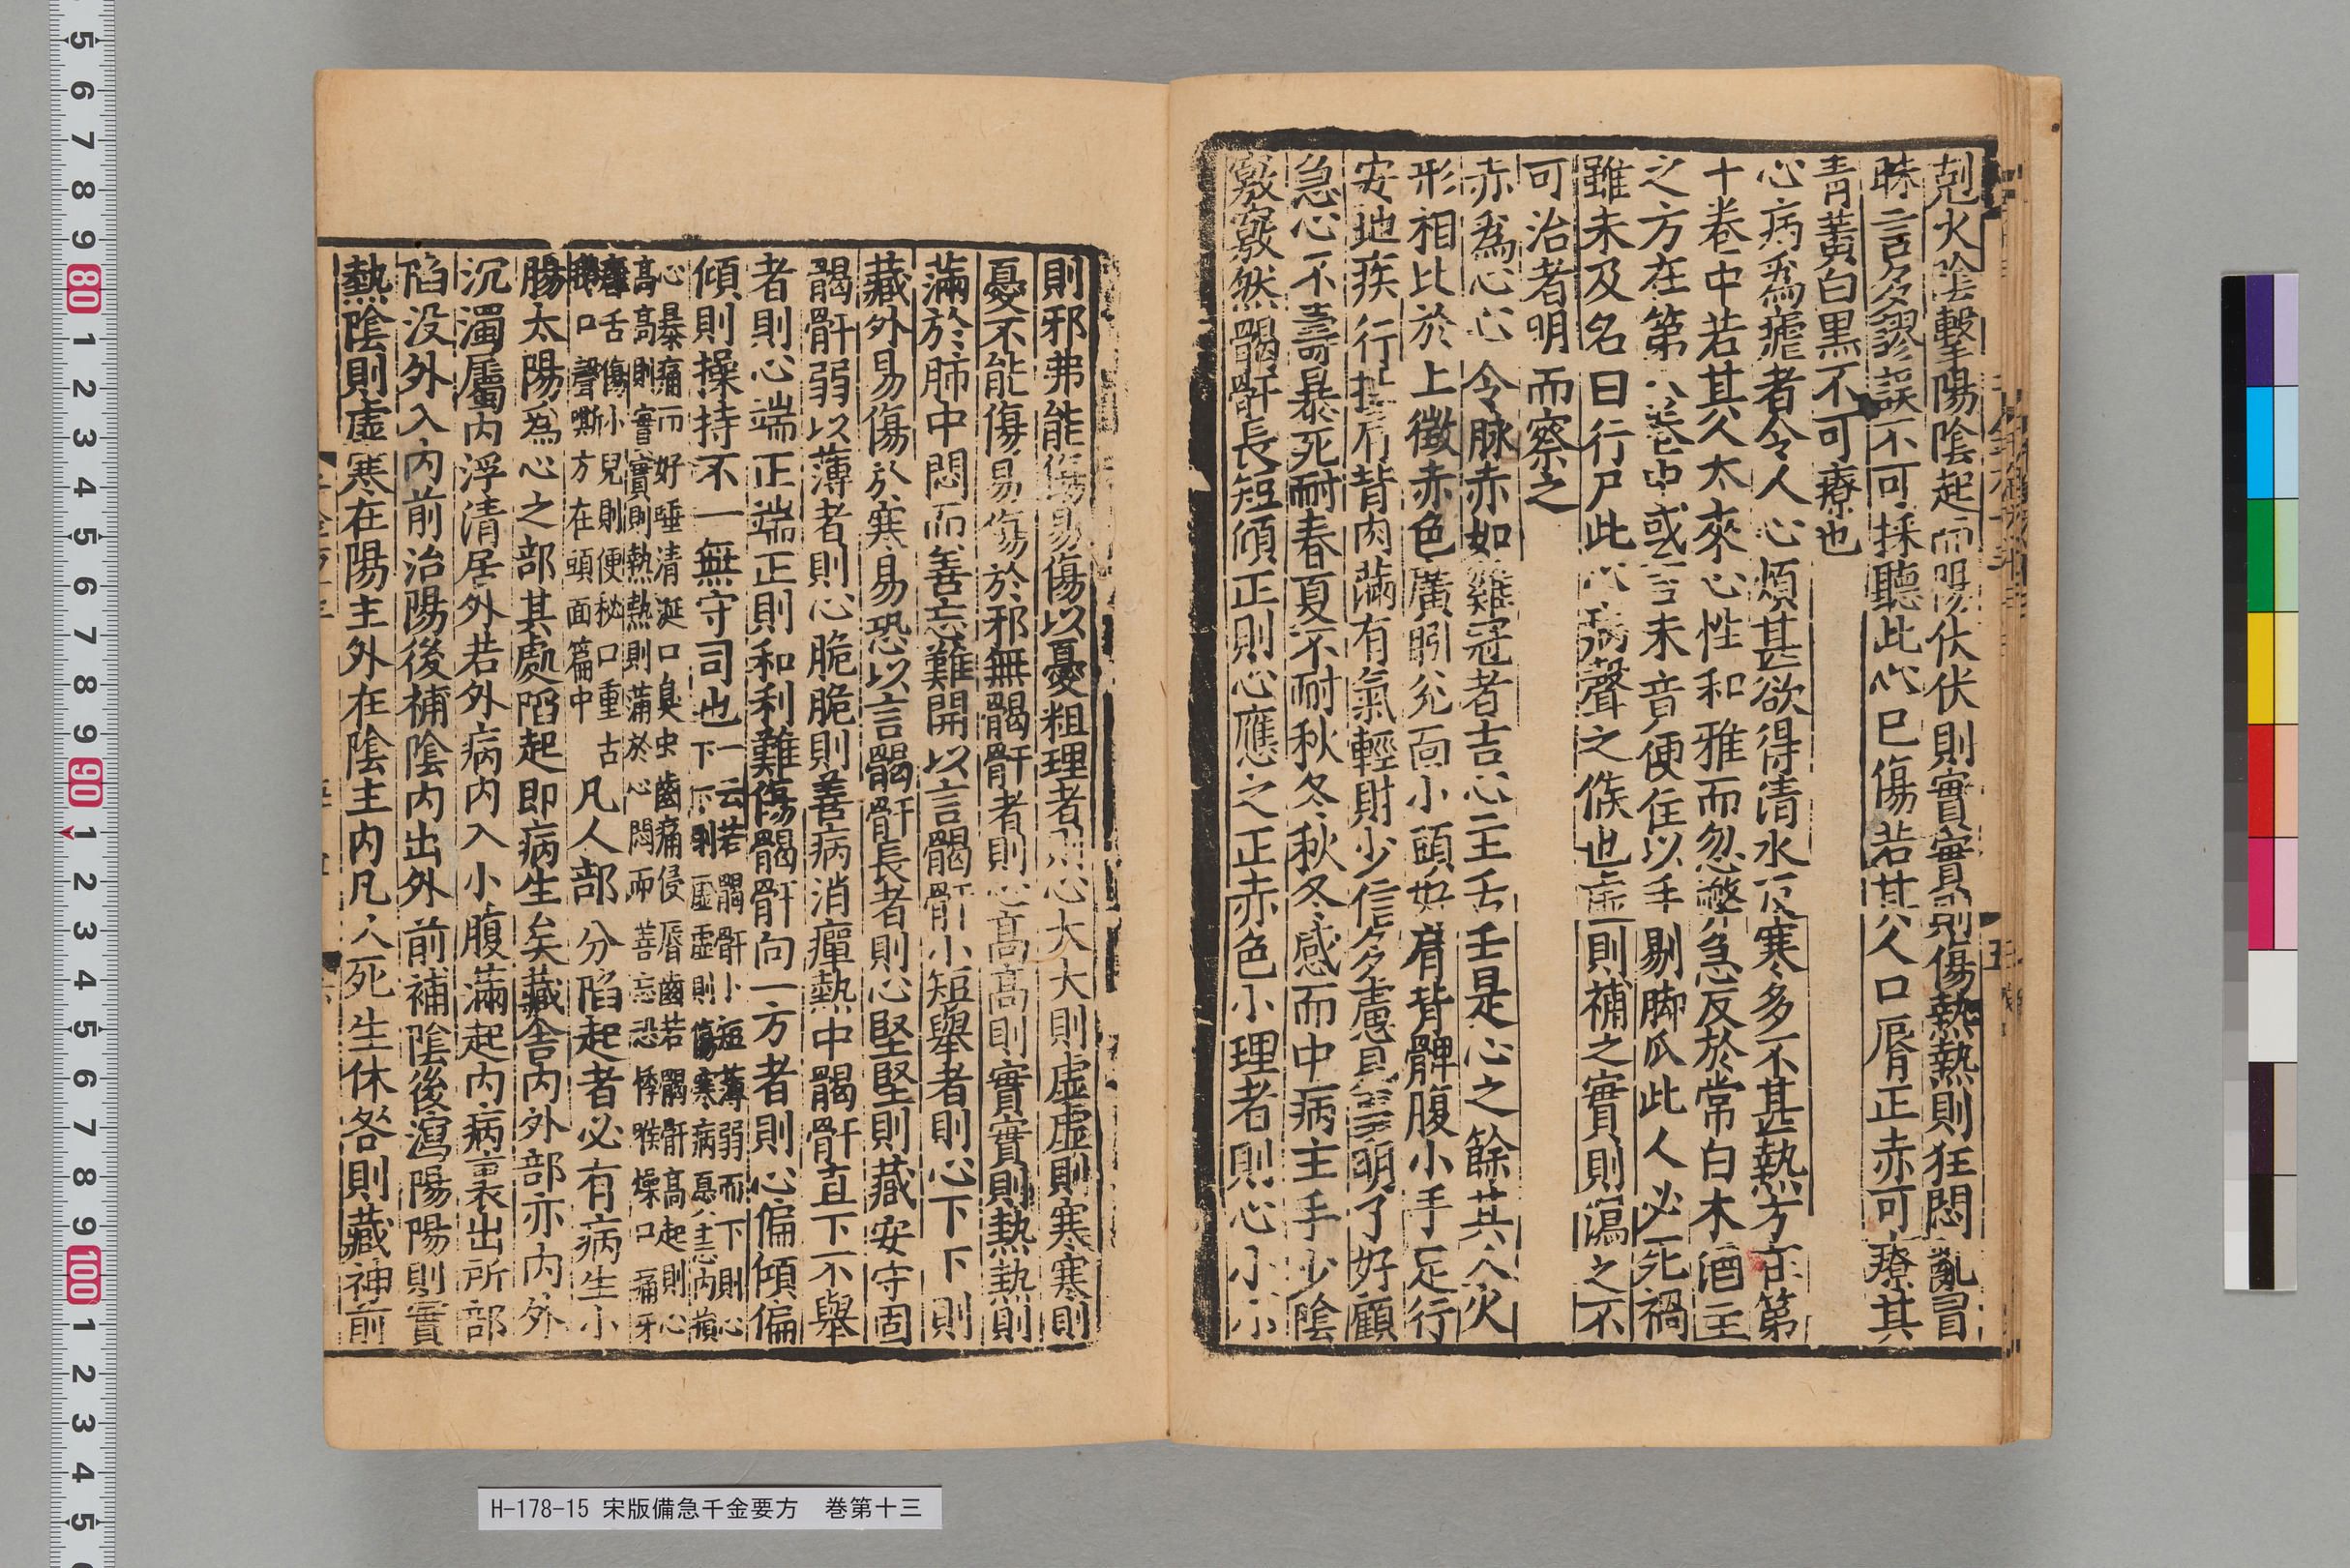 剋火陰擊陽陰起而陽伏伏則實實則傷熱熱則狂悶亂冒
昧言多謬誤不可採聽此心已傷若其人口脣正赤可療其
青黃白黑不可療也
心病爲瘧者令人心煩甚欲得清水反寒多不甚熱方在第
十卷中若其人本來心性和雅而忽弊急反於常白木酒主
之方在第八卷中或言未竟便住以手剔脚爪此人必死禍
雖未及名曰行尸此心病聲之候也虛則補之實則瀉之不
可治者明而察之
赤爲心心令脉赤如雞冠者吉心主舌舌是心之餘其人火
形相比於上徵赤色廣䏖兌面小頭好肩背髀腹小手足行
安地疾行搖肩背肉滿有氣輕財少信多慮見事明了好顧
急心不壽暴死耐春夏不耐秋冬秋冬感而中病主手少陰
竅竅然𩩲骬長短傾正則心應之正赤色小理者則心小小
則邪弗能傷易傷以憂粗理者則心大大則虛虛則寒寒則
憂不能傷易傷於邪無𩩲骬者則心高高則實實則熱熱則
滿於肺中悶而善忘難開以言𩩲骬小短舉者則心下下則
藏外易傷於寒易恐以言𩩲骬長者則心堅堅則藏安守固
𩩲骬弱以薄者則心脆脆則善病消癉熱中𩩲骬直下不舉
者則心端正端正則和利難傷𩩲骬向一方者則心偏傾偏
傾則操持不一無守司也一云若𩩲骬小短薄弱而下則心
下下則虛虛則傷寒病内
心暴痛而好唾清涎口臭虫齒痛侵脣齒若𩩲骬高起則心
高高則實實則熱熱則滿於心悶而善忘恐悸喉燥口痛牙
舌傷小兒則便秘口重古
口聲嘶方在頭面篇中凡人部分陷起者必有病生小
腸太陽爲心之部其處陷起即病生矣藏含内外部亦内外
沉濁屬内浮清居外若外病内入小腹滿起内病裏出所部
陷没外入内前治陽後補陰内出外前補陰後瀉陽陽則實
熱陰則虛寒在陽主外在陰主内凡人死生休咎則藏神前
H-178-15 宋版備急千金要方 巻第十三